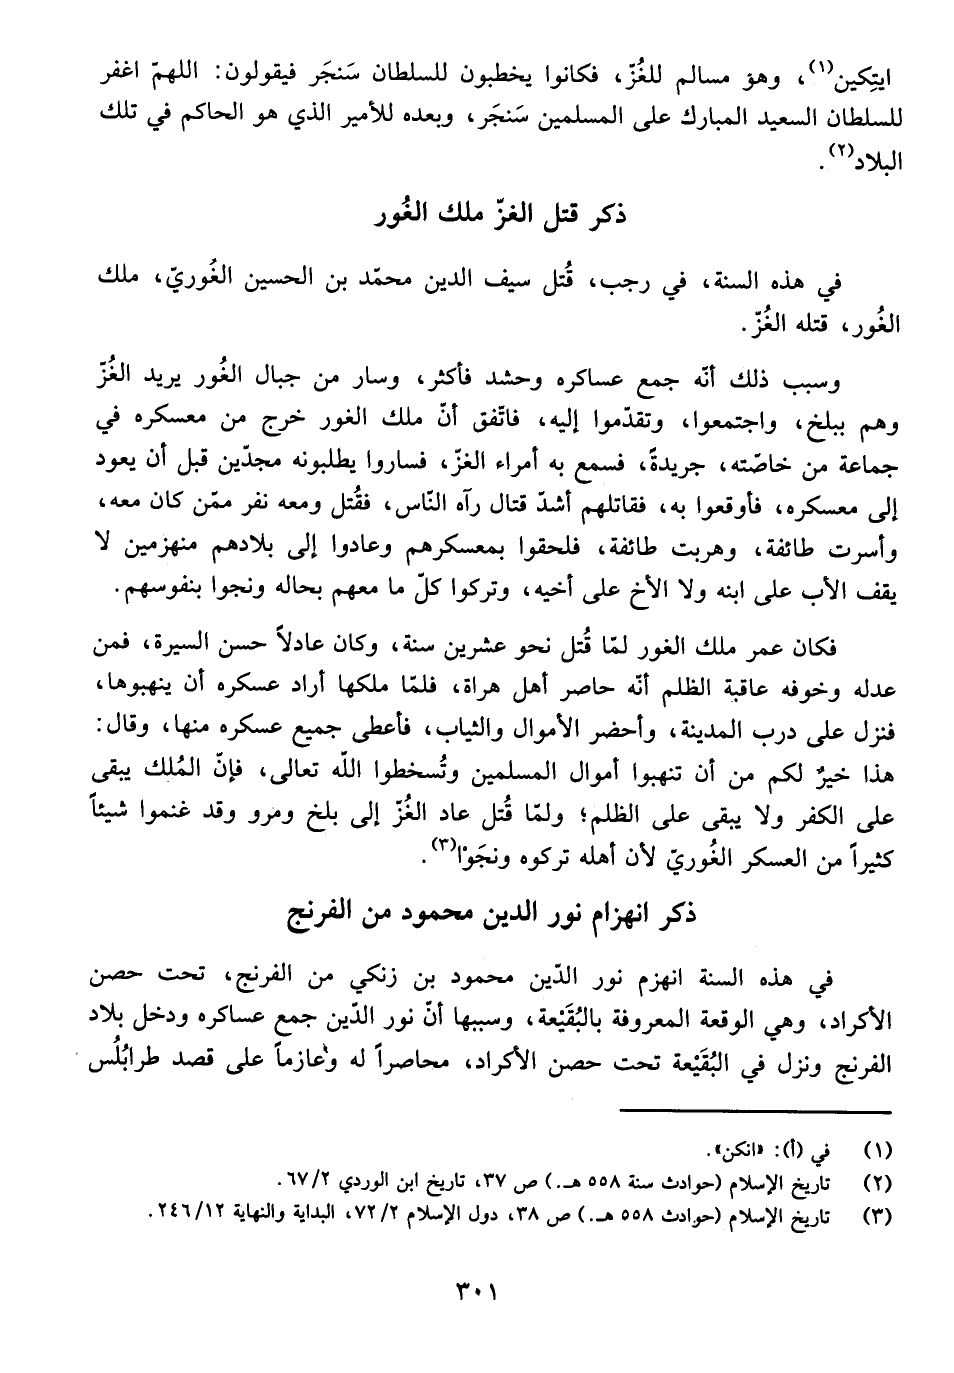 ايتِكين(١)، وهو مسالم للغُزّ، فكانوا يخطبون للسلطان سَنجَر فيقولون: اللهمّ اغفر
للسلطان السعيد المبارك على المسلمين سَنجَر، وبعده للأمير الذي هو الحاكم في تلك
البلاد(٢).
ذكر قتل الغزّ ملك الغُور
في هذه السنة، في رجب، قُتل سيف الدين محمّد بن الحسين الغُوريّ، ملك
الغُور، قتله الغُزّ.
وسبب ذلك أنّه جمع عساكره وحشد فأكثر، وسار من جبال الغُور يريد الغُزّ
وهم ببلخ، واجتمعوا، وتقدّموا إليه، فاتّفق أنّ ملك الغور خرج من معسكره في
جماعة من خاصّته، جريدةً، فسمع به أمراء الغزّ، فساروا يطلبونه مجدّين قبل أن يعود
إلى معسكره، فأوقعوا به، فقاتلهم أشدّ قتال رآه النّاس، فقُتل ومعه نفر ممّن كان معه،
وأسرت طائفة، وهربت طائفة، فلحقوا بمعسكرهم وعادوا إلى بلادهم منهزمين لا
يقف الأب على ابنه ولا الأخ على أخيه، وتركوا كلّ ما معهم بحاله ونجوا بنفوسهم.
فكان عمر ملك الغور لمّا قُتل نحو عشرين سنة، وكان عادلاً حسن السيرة، فمن
عدله وخوفه عاقبة الظلم أنّه حاصر أهل هراة، فلمّا ملكها أراد عسكره أن ينهبوها،
فنزل على درب المدينة، وأحضر الأموال والثياب، فأعطى جميع عسكره منها، وقال:
هذا خيرٌ لكم من أن تنهبوا أموال المسلمين وتُسخطوا اللّه تعالى، فإنّ المُلك يبقى
على الكفر ولا يبقى على الظلم؛ ولمّا قُتل عاد الغُزّ إلى بلخ ومرو وقد غنموا شيئاً
كثيراً من العسكر الغُوريّ لأن أهله تركوه ونجَوْا(٣).
ذكر انهزام نور الدين محمود من الفرنج
في هذه السنة انهزم نور الدّين محمود بن زنكي من الفرنج، تحت حصن
الأكراد، وهي الوقعة المعروفة بالبُقَيْعة، وسببها أنّ نور الدّين جمع عساكره ودخل بلاد
الفرنج ونزل في البُقَيْعة تحت حصن الأكراد، محاصراً له وعازماً على قصد طرابُلُس
(١) في (أ): «انكن».
(٢) تاريخ الإسلام (حوادث سنة ٥٥٨ هـ.) ص ٣٧، تاريخ ابن الوردي ٦٧/٢.
(٣) تاريخ الإسلام (حوادث ٥٥٨ هـ.) ص ٣٨، دول الإسلام ٧٢/٢، البداية والنهاية ٢٤٦/١٢.
٣٠١